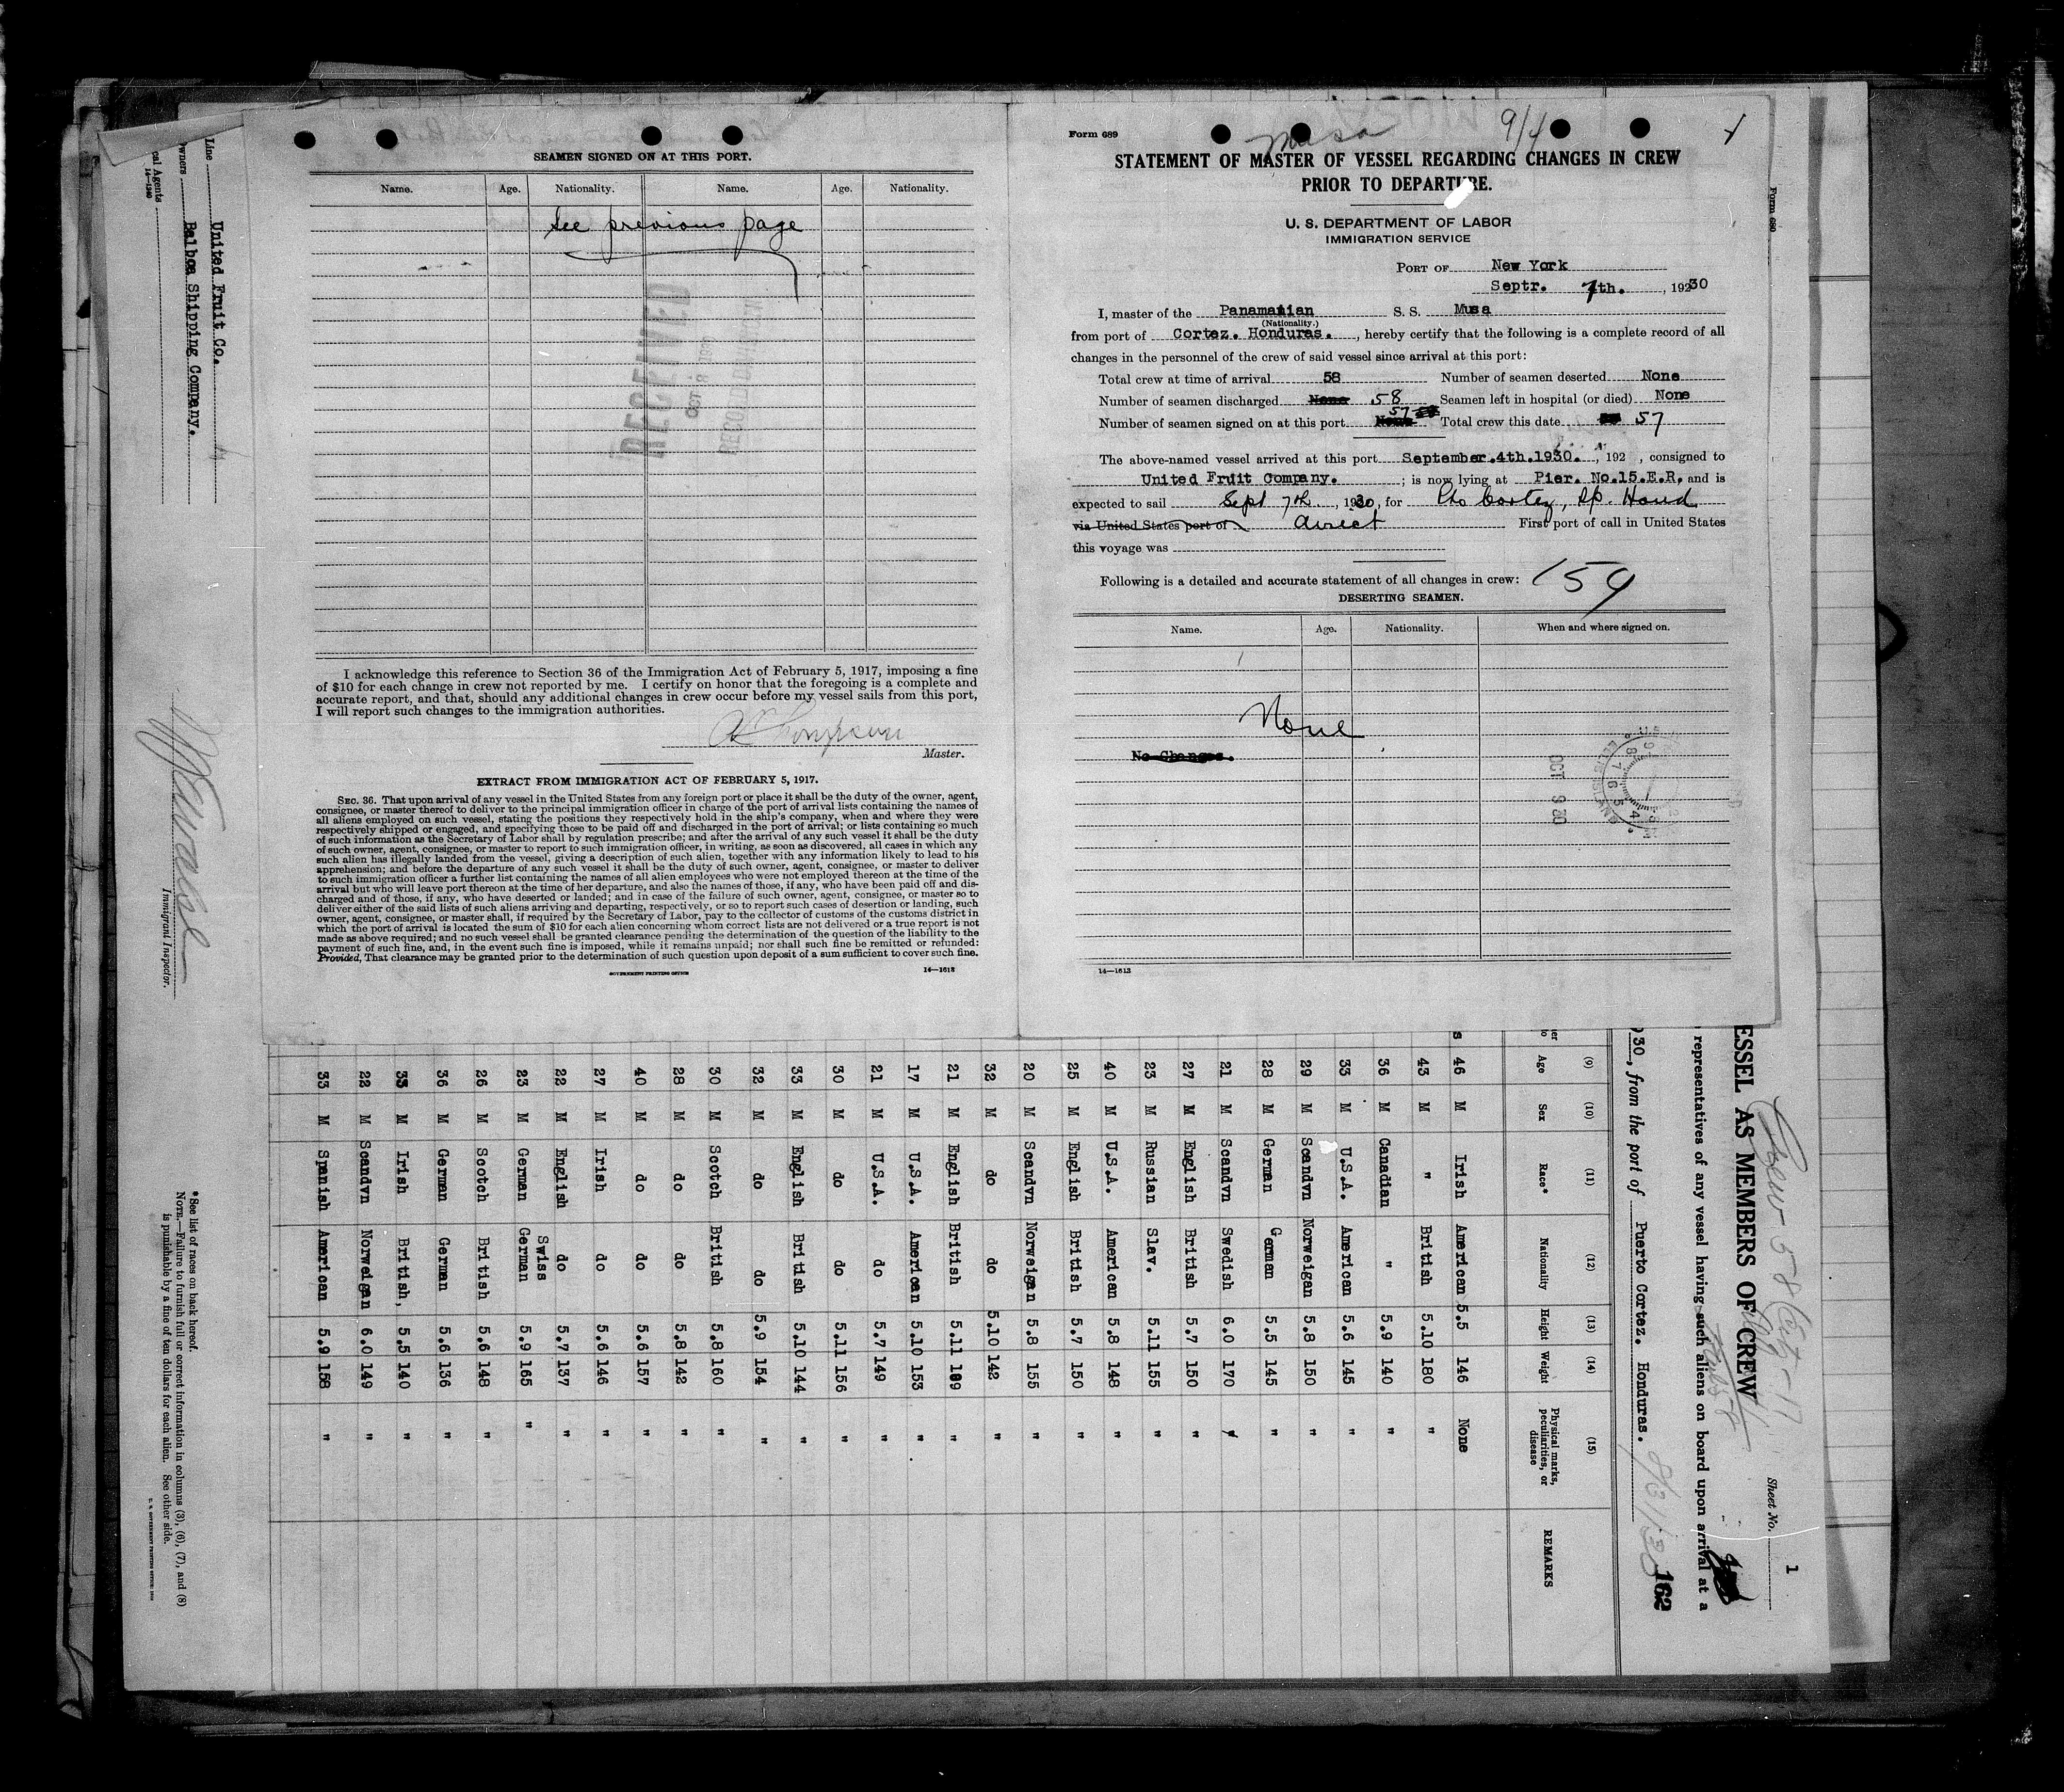 SEAMEN SIGNED ON AT THIS PORT.
Name. Age. Nationality. Name. Age. Nationality.
See previous page
RECEIVED
OCT 8
I acknowledge this reference to Section 36 of the Immigration Act of February 5, 1917, imposing a fine
of $10 for each change in crew not reported by me. I certify on honor that the foregoing is a complete and
accurate report, and that, should any additional changes in crew occur before my vessel sails from this port,
I will report such changes to the immigration authorities.
Thompson
Master.
EXTRACT FROM IMMIGRATION ACT OF FEBRUARY 5, 1917.
SEC. 36. That upon arrival of any vessel in the United States from any foreign port or place it shall be the duty of the owner, agent,
consignee, or master thereof to deliver to the principal immigration officer in charge of the port of arrival lists containing the names of
all aliens employed on such vessel, stating the positions they respectively hold in the ship's company, when and where they were
respectively shipped or engaged, and specifying those to be paid off and discharged in the port of arrival; or lists containing so much
of such information as the Secretary of Labor shall by regulation prescribe; and after the arrival of any such vessel it shall be the duty
of such owner, agent, consignee, or master to report to such immigration officer, in writing, as soon as discovered, all cases in which any
such alien has illegally landed from the vessel, giving a description of such alien, together with any information likely to lead to his
apprehension; and before the departure of any such vessel it shall be the duty of such owner, agent, consignee, or master to deliver
to such immigration officer a further list containing the names of all alien employees who were not employed thereon at the time of the
arrival but who will leave port thereon at the time of her departure, and also the names of those, if any, who have been paid off and dis-
charged and of those, if any, who have deserted or landed; and in case of the failure of such owner, agent, consignee, or master so to
deliver either of the said lists of such aliens arriving and departing, respectively, or so to report such cases of desertion or landing, such
owner, agent, consignee, or master shall, if required by the Secretary of Labor, pay to the collector of customs of the customs district in
which the port of arrival is located the sum of $10 for each alien concerning whom correct lists are not delivered or a true report is not
made as above required; and no such vessel shall be granted clearance pending the determination of the question of the liability to the
payment of such fine, and, in the event such fine is imposed, while it remains unpaid; nor shall such fine be remitted or refunded:
Provided, That clearance may be granted prior to the determination of such question upon deposit of a sum sufficient to cover such fine.
GOVERNMENT PRINTING OFFICE 14—1613
Form 689
Musa 9/4
STATEMENT OF MASTER OF VESSEL REGARDING CHANGES IN CREW
PRIOR TO DEPARTURE.
U. S. DEPARTMENT OF LABOR
IMMIGRATION SERVICE
PORT OF New York
Septr. 7th. , 1930
I, master of the Panamanian S. S. Musa
(Nationality.)
from port of Cortez. Honduras. , hereby certify that the following is a complete record of all
changes in the personnel of the crew of said vessel since arrival at this port:
Total crew at time of arrival 58 Number of seamen deserted None
Number of seamen discharged None 58 Seamen left in hospital (or died) None
Number of seamen signed on at this port None 57 Total crew this date 57
The above-named vessel arrived at this port September.4th.1930. , 192 , consigned to
United Fruit Company. ; is now lying at Pier. No.15.E.R. and is
expected to sail Sept 7th , 1930, for Pto Cortez, Sp. Hond
via United States port of direct First port of call in United States
this voyage was
Following is a detailed and accurate statement of all changes in crew: 159
DESERTING SEAMEN.
Name. Age. Nationality. When and where signed on.
None
No Changes.
OCT 9 30
14—1613
Form 689
Line United Fruit Co.
Owners Balboa Shipping Company.
cal Agents
14—1240
Immigrant Inspector.
*See list of races on back hereof.
NOTE.—Failure to furnish full or correct information in columns (3), (6), (7), and (8)
is punishable by a fine of ten dollars for each alien. See other side.
Sheet No. 1
Crew 58
ESSEL AS MEMBERS OF CREW
representatives of any vessel having such aliens on board upon arrival at a
30, from the port of Puerto Cortez. Honduras. 8/31/30
162
(9) (10) (11) (12) (13) (14) (15)
Age Sex Race* Nationality Height Weight Physical marks, peculiarities, or disease REMARKS
46 M Irish American 5.5 146 None
43 M " British 5.10 180 "
36 M Canadian " 5.9 140 "
33 M U.S.A. American 5.6 145 "
29 M Scandvn Norweigan 5.8 150 "
28 M German German 5.5 145 "
21 M Scandvn Swedish 6.0 170 "
27 M English British 5.7 150 "
23 M Russian Slav. 5.11 155 "
40 M U.S.A. American 5.8 148 "
25 M English British 5.7 150 "
20 M Scandvn Norweigan 5.8 155 "
32 M do do 5.10 142 "
21 M English British 5.11 189 "
17 M U.S.A. American 5.10 153 "
21 M U.S.A. do 5.7 149 "
30 M do do 5.11 156 "
33 M English British 5.10 144 "
32 M do do 5.9 154 "
30 M Scotch British 5.8 160 "
28 M do do 5.8 142 "
40 M do do 5.6 157 "
27 M Irish do 5.6 146 "
22 M English do 5.7 137 "
23 M German Swiss German 5.9 165 "
26 M Scotch British 5.6 148 "
36 M German German 5.6 136 "
33 M Irish British, 5.5 140 "
22 M Scandvn Norweigan 6.0 149 "
33 M Spanish American 5.9 158 "